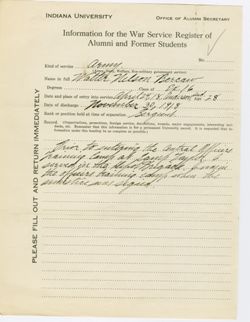 INDIANA UNIVERSITY
OFFICE OF ALUMNI SECRETARY
Information for the War Service Register of
Alumni and Former Students
Kind of service Army
(Army, Navy, Welfare, Non-military government service)
Name in full Walter Nelson
Degrees Class of
Date and place of entry into service April 2 '18 Age 28
Date of discharge November 29, 1918
Rank or position held at time of separation Sergeant
Prior to entering the Central Officers
Training Camp at Camp Taylor I
served in the Depot Brigade. I was in
the officers training camp when the
armistice was signed.
PLEASE FILL OUT AND RETURN IMMEDIATELY